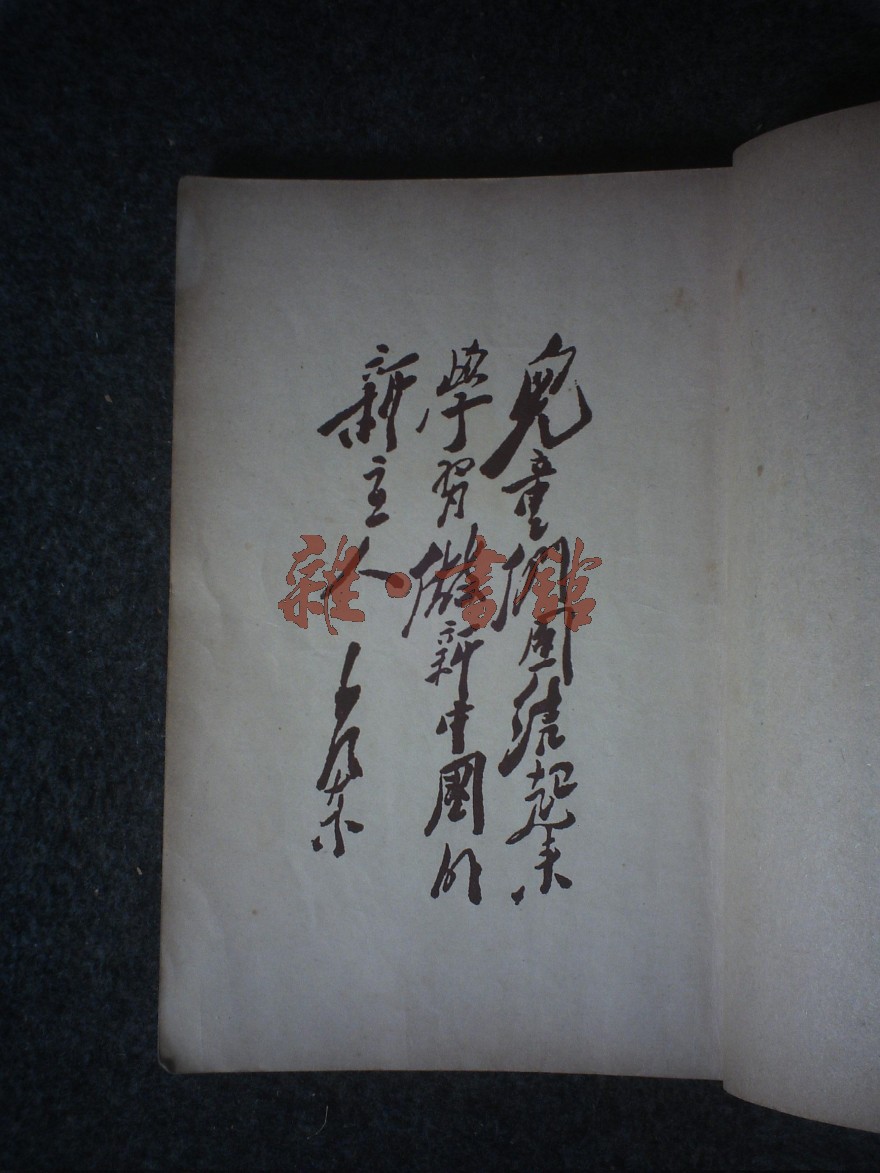 兒童們團結起來
學習做新中國的
新主人
毛澤東
雜·書館